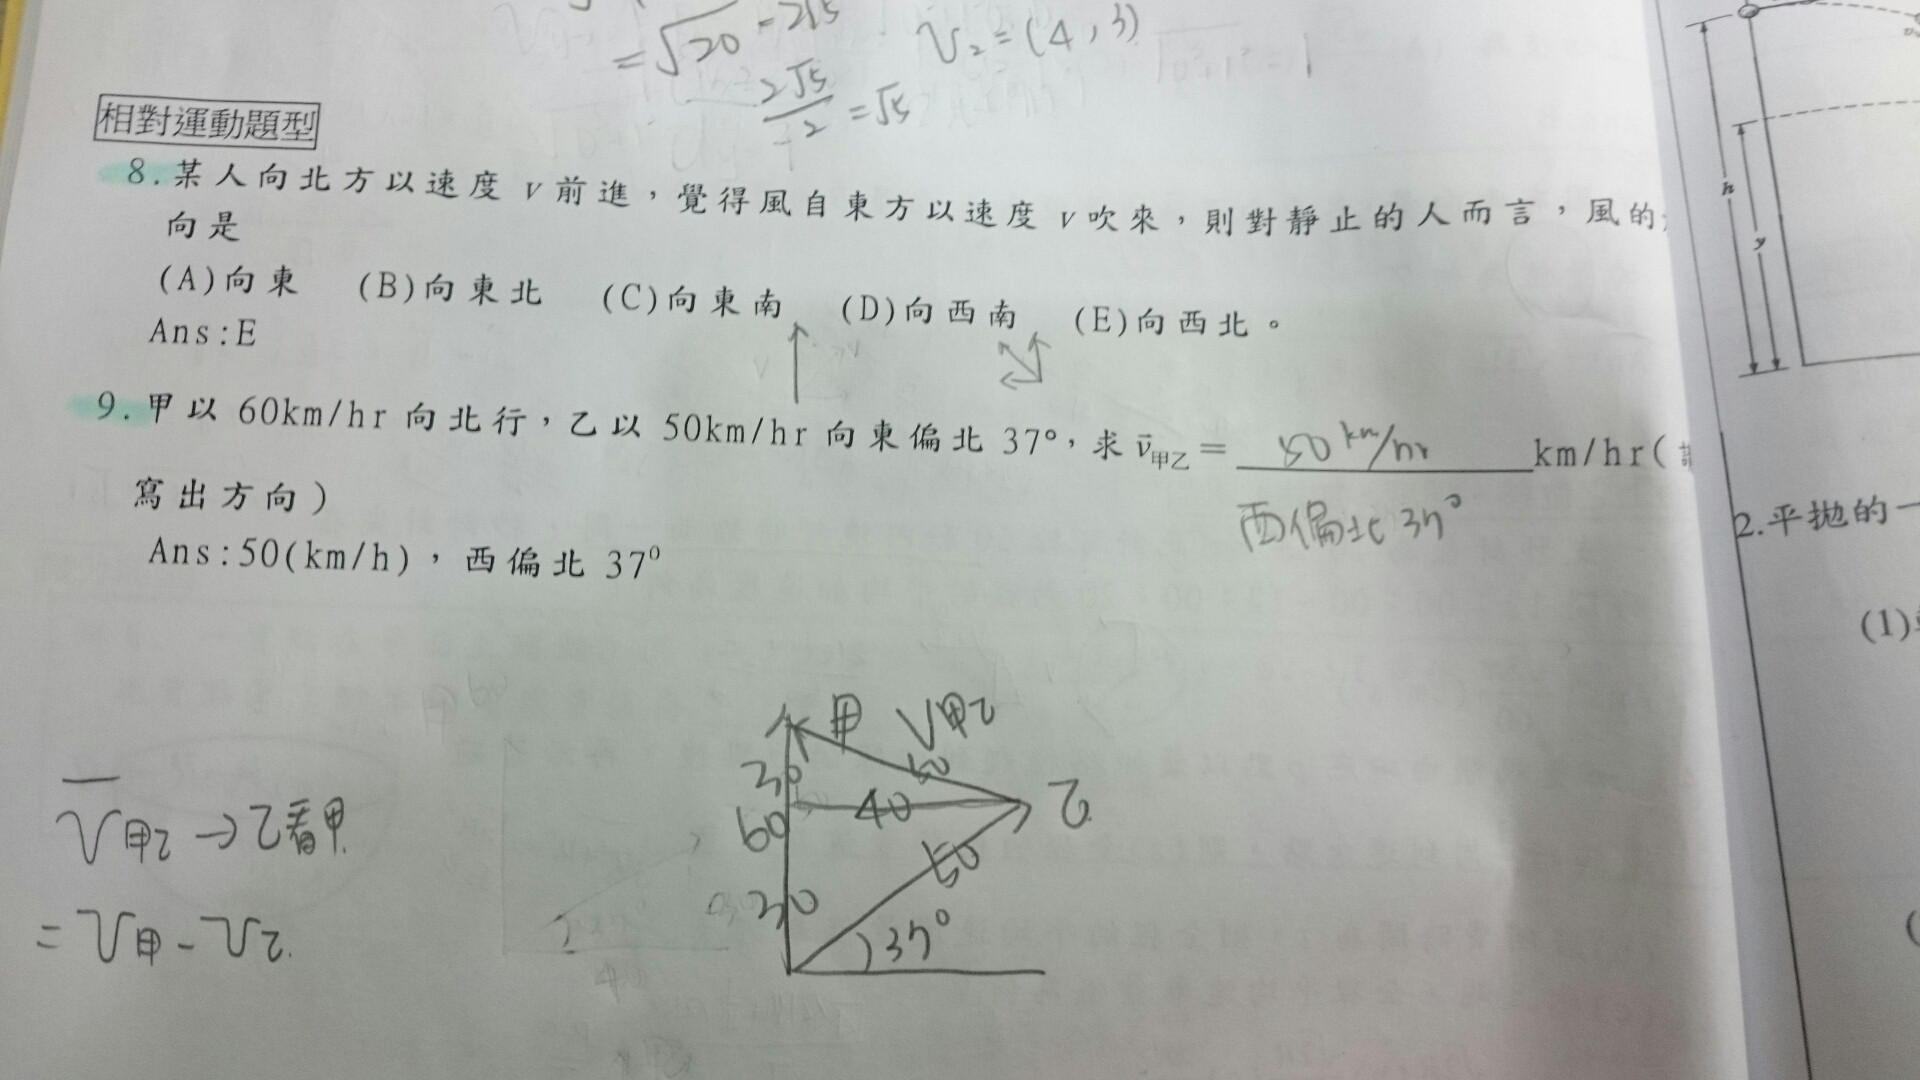 = √20 = 2√5
V₂ = (4, 3)
2√5/2 = √5
相對運動題型
8. 某人向北方以速度 v 前進，覺得風自東方以速度 v 吹來，則對靜止的人而言，風的
向是
(A)向東 (B)向東北 (C)向東南 (D)向西南 (E)向西北。
Ans:E
V
V
9. 甲以 60km/hr 向北行，乙以 50km/hr 向東偏北 37°，求 v̄甲乙 = 50 km/hr km/hr(
寫出方向)
西偏北 37°
Ans:50(km/h)，西偏北 37⁰
甲 V甲乙
30 50
60 40 乙
50
30
37°
V甲乙 → 乙看甲
= V甲 - V乙.
h
y
2.平拋的一
(1)